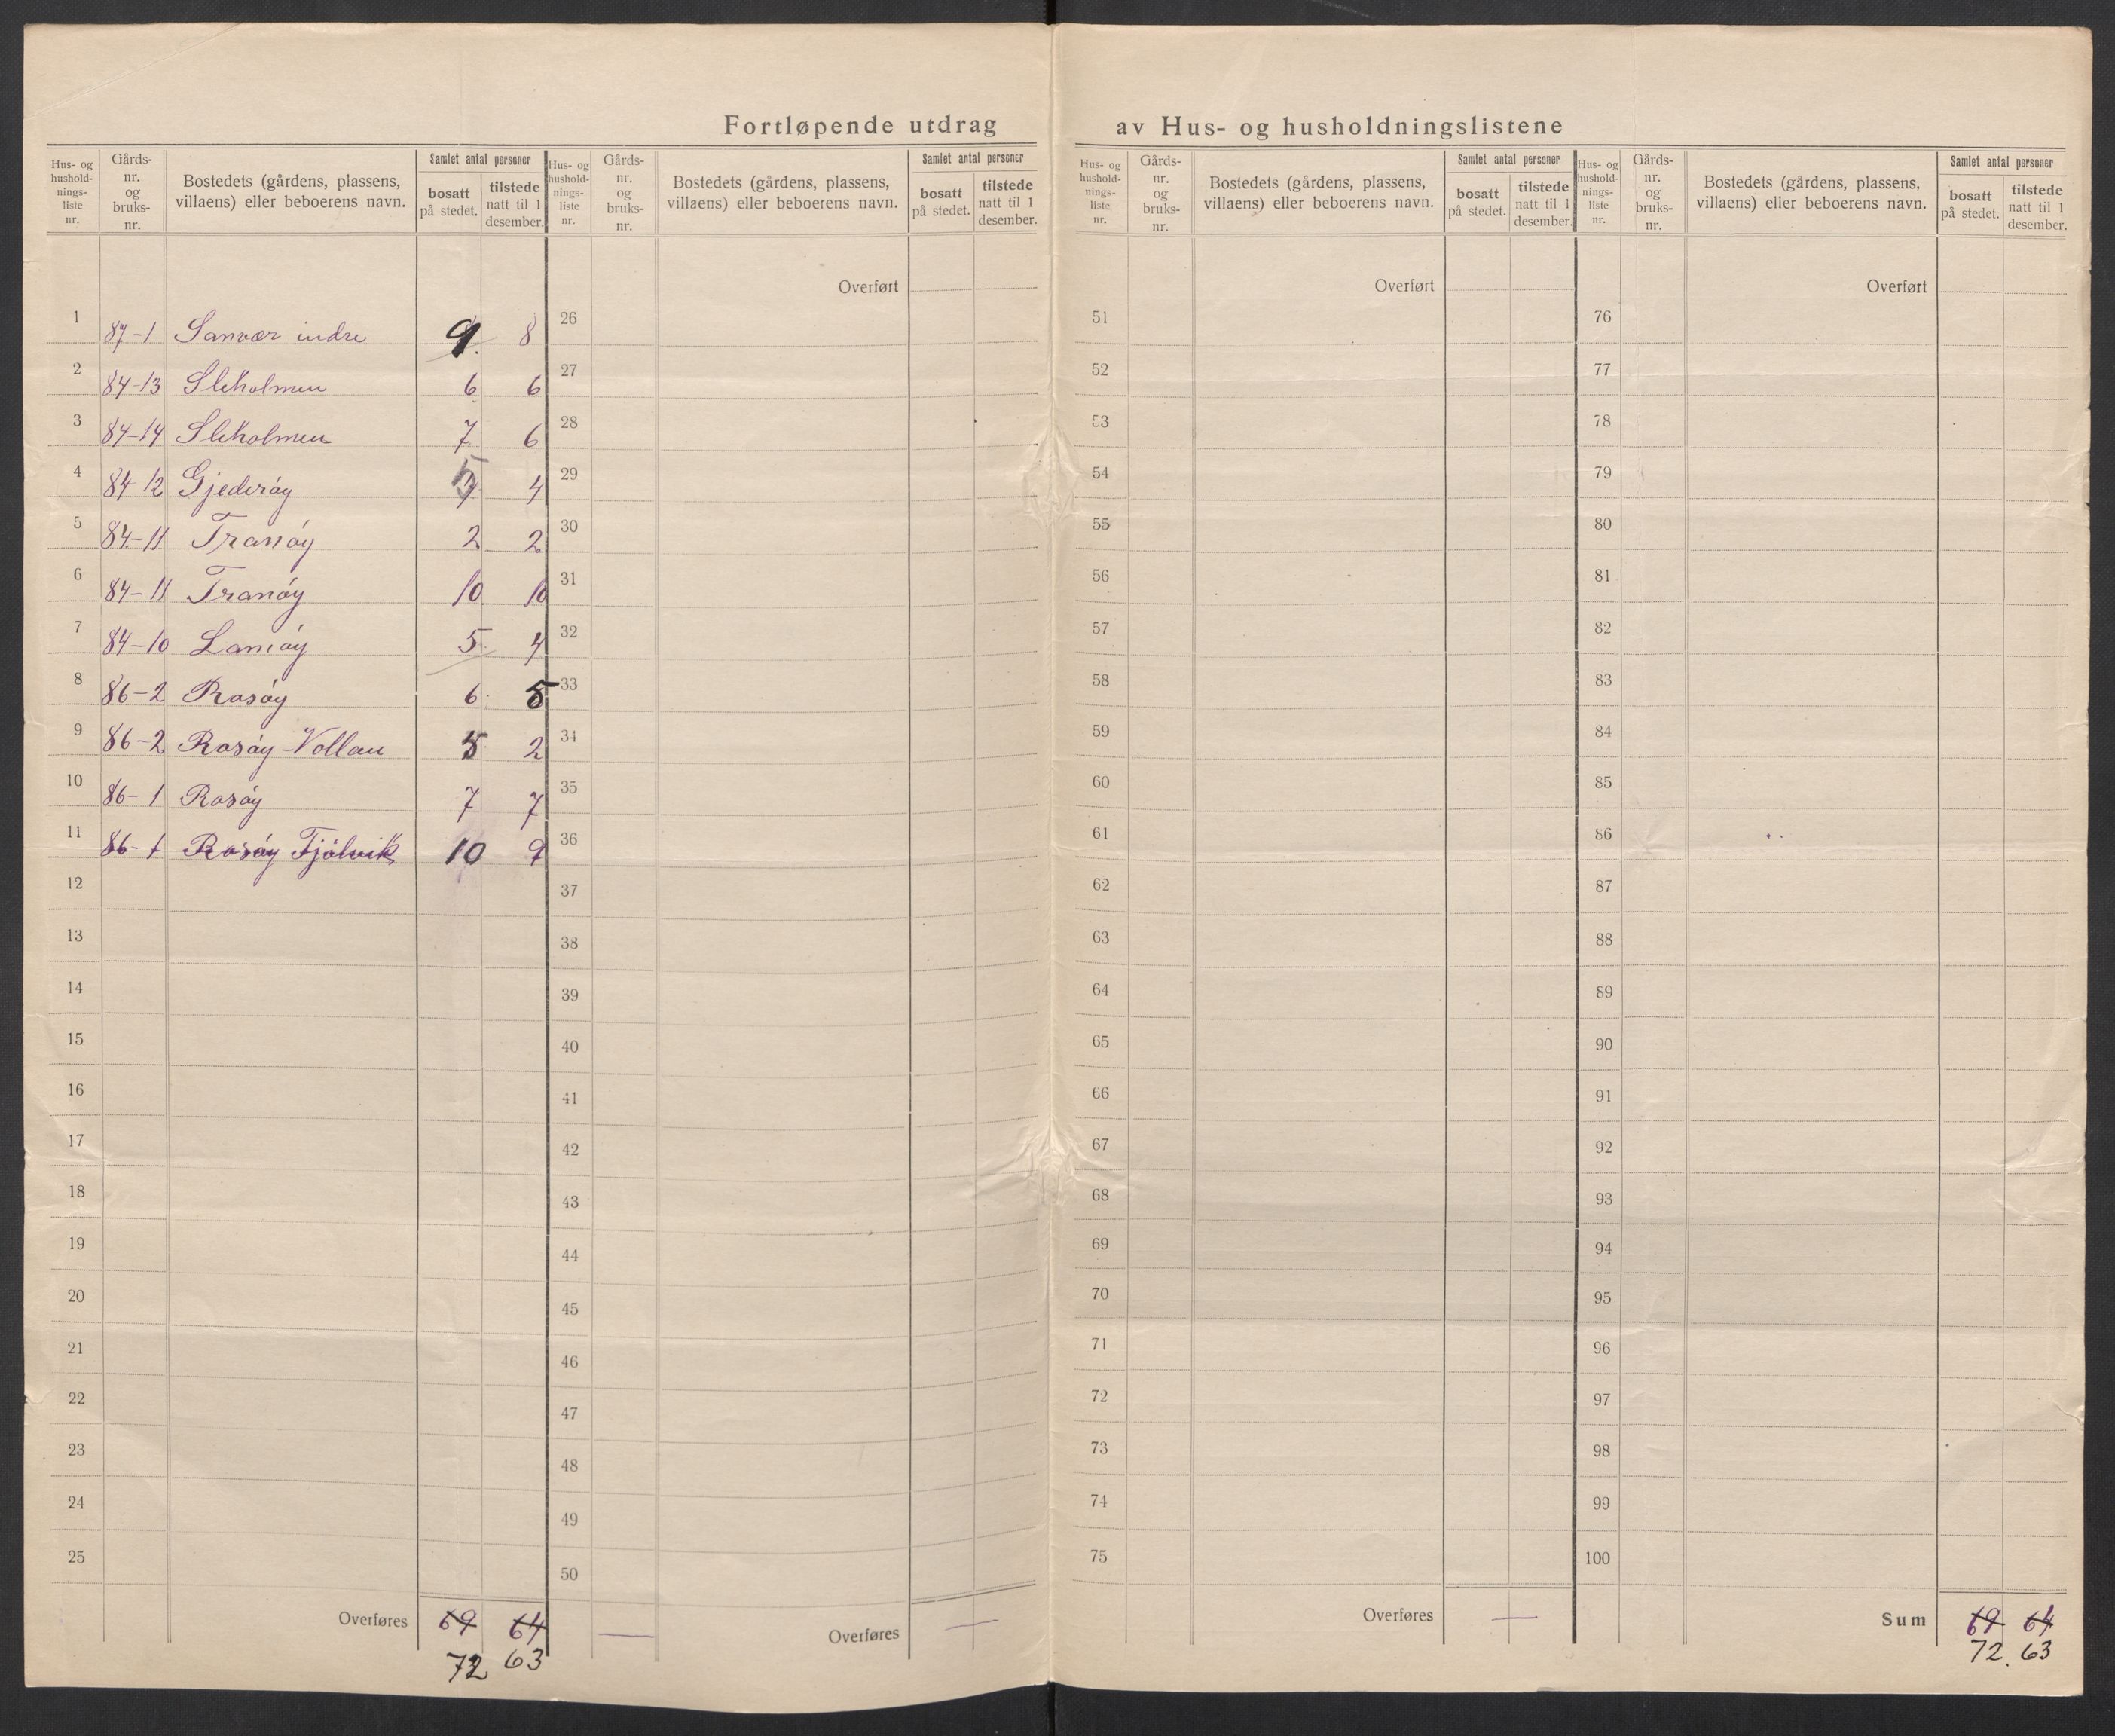 Fortløpende utdrag av Hus- og husholdningslistene
Hus- og hushold-nings-liste nr. Gårds-nr. og bruks-nr. Bostedets (gårdens, plassens, villaens) eller beboerens navn. Samlet antal personer bosatt på stedet. tilstede natt til 1 desember.
Hus- og hushold-nings-liste nr. Gårds-nr. og bruks-nr. Bostedets (gårdens, plassens, villaens) eller beboerens navn. Samlet antal personer bosatt på stedet. tilstede natt til 1 desember.
Hus- og hushold-nings-liste nr. Gårds-nr. og bruks-nr. Bostedets (gårdens, plassens, villaens) eller beboerens navn. Samlet antal personer bosatt på stedet. tilstede natt til 1 desember.
Hus- og hushold-nings-liste nr. Gårds-nr. og bruks-nr. Bostedets (gårdens, plassens, villaens) eller beboerens navn. Samlet antal personer bosatt på stedet. tilstede natt til 1 desember.
1 87-1 Sanvær indre 9 8
2 84-13 Slekholmen 6 6
3 84-14 Slekholmen 7 6
4 84 12 Gjederöy 5 4
5 84-11 Tranöy 2 2
6 84-11 Tranöy 10 10
7 84-10 Lamöy 5 4
8 86-2 Rosöy 6 5
9 86-2 Rosöy-Vollan 5 2
10 86-1 Rosöy 7 7
11 86-1 Rosöy Fjölvik 10 9
12
13
14
15
16
17
18
19
20
21
22
23
24
25
Overføres 69 64
72 63
Overført
26
27
28
29
30
31
32
33
34
35
36
37
38
39
40
41
42
43
44
45
46
47
48
49
50
Overføres —
Overført
51
52
53
54
55
56
57
58
59
60
61
62
63
64
65
66
67
68
69
70
71
72
73
74
75
Overføres —
Overført
76
77
78
79
80
81
82
83
84
85
86
87
88
89
90
91
92
93
94
95
96
97
98
99
100
Sum 69 64
72. 63